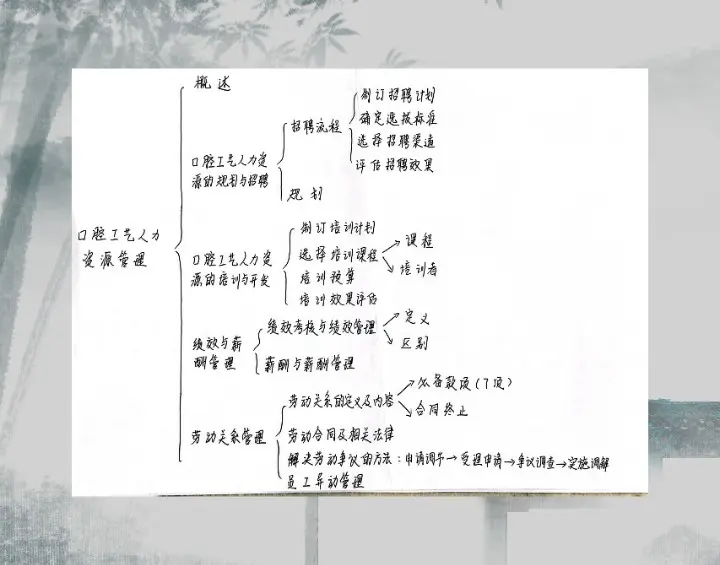 口腔工艺人力
资源管理
概述
口腔工艺人力资
源的规划与招聘
招聘流程
制订招聘计划
确定选拔标准
选择招聘渠道
评估招聘效果
规划
口腔工艺人力资
源的培训与开发
制订培训计划
选择培训课程
课程
培训者
培训预算
培训效果评估
绩效与薪
酬管理
绩效考核与绩效管理
定义
区别
薪酬与薪酬管理
劳动关系管理
劳动关系的定义及内容
必备款项(7项)
合同终止
劳动合同及相关法律
解决劳动争议的方法:申请调节→受理申请→争议调查→实施调解
员工异动管理